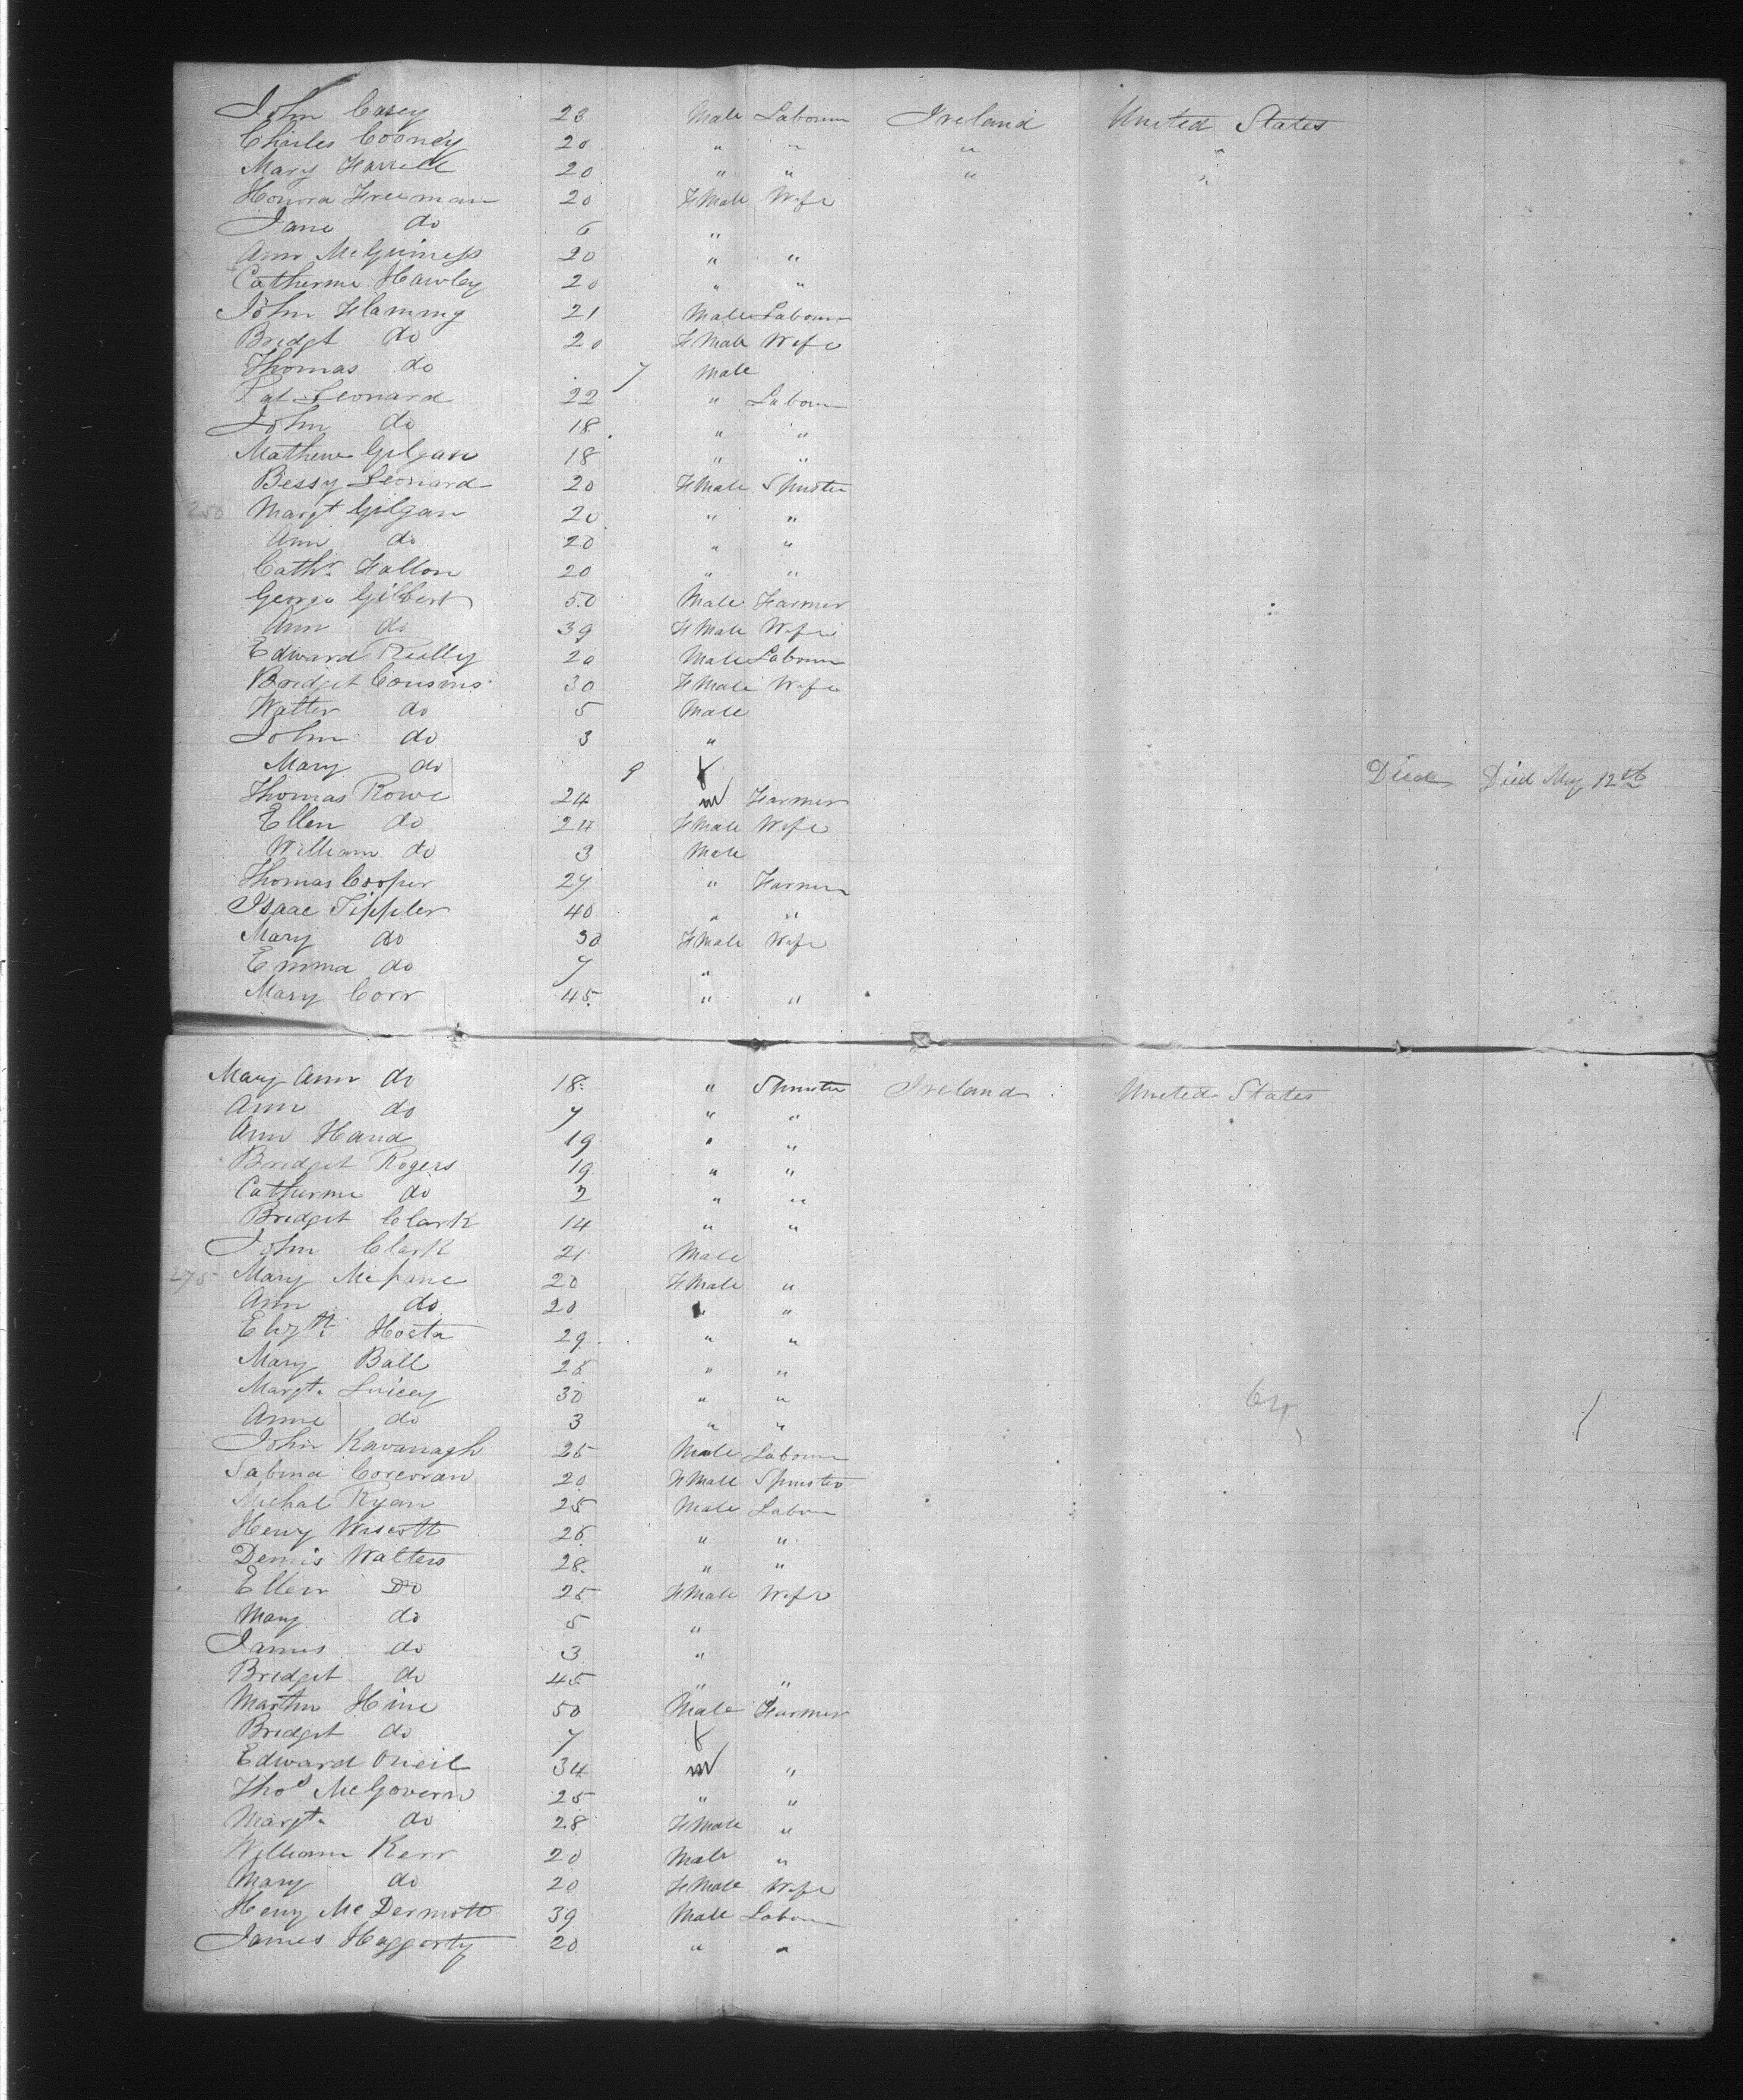 John Casey 23 Male Labourer Ireland United States
Charles Cooney 20 " " " "
Mary Farrell 20 " " " "
Honora Freeman 20 FMale Wife
Jane do 6 "
Ann McGuiness 20 " "
Catherine Hawley 20 " "
John Flaming 21 Male Labourer
Bridgt do 20 FMale Wife
Thomas do 7 Male
Pat Leonard 22 " Labour
John do 18 " "
Mathew Gilgan 18 " "
Bessy Leonard 20 FMale Spinster
250 Margt Gilgan 20 " "
Ann do 20 " "
Cathr. Fallon 20 " "
George Gilbert 50 Male Farmer
Ann do 39 FMale Wife
Edward Reilly 20 Male Labourer
Bridget Cousins 30 FMale Wife
Walter do 5 Male
John do 3 "
Mary do 9 f Died Died May 12th
Thomas Rowe 24 m Farmer
Ellen do 24 FMale Wife
William do 3 Male
Thomas Cooper 27 " Farmer
Isaac Tippler 40 " "
Mary do 30 FMale Wife
Emma do 7 "
Mary Corr 45 " "
Mary Ann do 18 " Spinster Ireland United States
Ann do 7 " "
Ann Hand 19 " "
Bridget Rogers 19 " "
Catherine do 2 " "
Bridget Clark 14 " "
John Clark 21 Male
275 Mary 20 FMale "
Ann do 20 " "
Elizth. 29 " "
Mary Ball 28 " "
Margt. 30 " "
Anne do 3 " "
John Kavanagh 25 Male Labourer
Sabina Corcoran 20 FMale Spinster
Michal Ryan 25 Male Labour
Henry 26 " "
Dennis Walters 28 " "
Ellen Do 25 FMale Wife
Mary do 5 "
James do 3 "
Bridget do 45 " "
Martin Hine 50 Male Farmer
Bridget do 7 f
Edward Oneil 34 m "
Thos McGovern 25 " "
Margt. do 28 FMale "
William Kerr 20 Male "
Mary do 20 FMale Wife
Henry McDermott 39 Male Labour
James Haggerty 20 " "